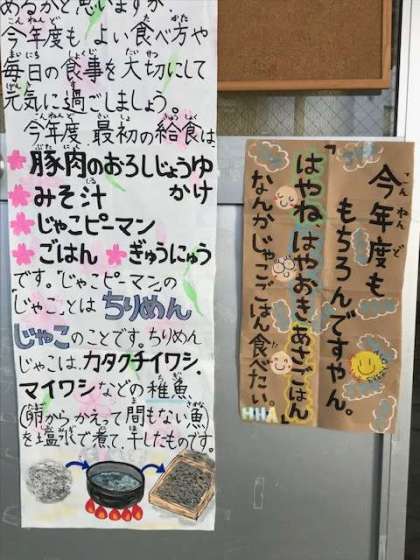 あるかと思いますが、
今年度も よい食べ方や
毎日の食事を大切にして
元気に過ごしましょう。
今年度、最初の給食は、
豚肉のおろしじょうゆ
かけ
みそ汁
じゃこピーマン
ごはん ぎゅうにゅう
です。「じゃこピーマン」の
「じゃこ」とは ちりめん
じゃこのことです。ちりめん
じゃこは、カタクチイワシ、
マイワシなどの稚魚
(卵からかえって間もない魚)
を塩水で煮て、干したものです。
今年度も
もちろんですやん。
「はやね、はやおき、あさごはん
なんかじゃこごはん食べたい。」
HHA